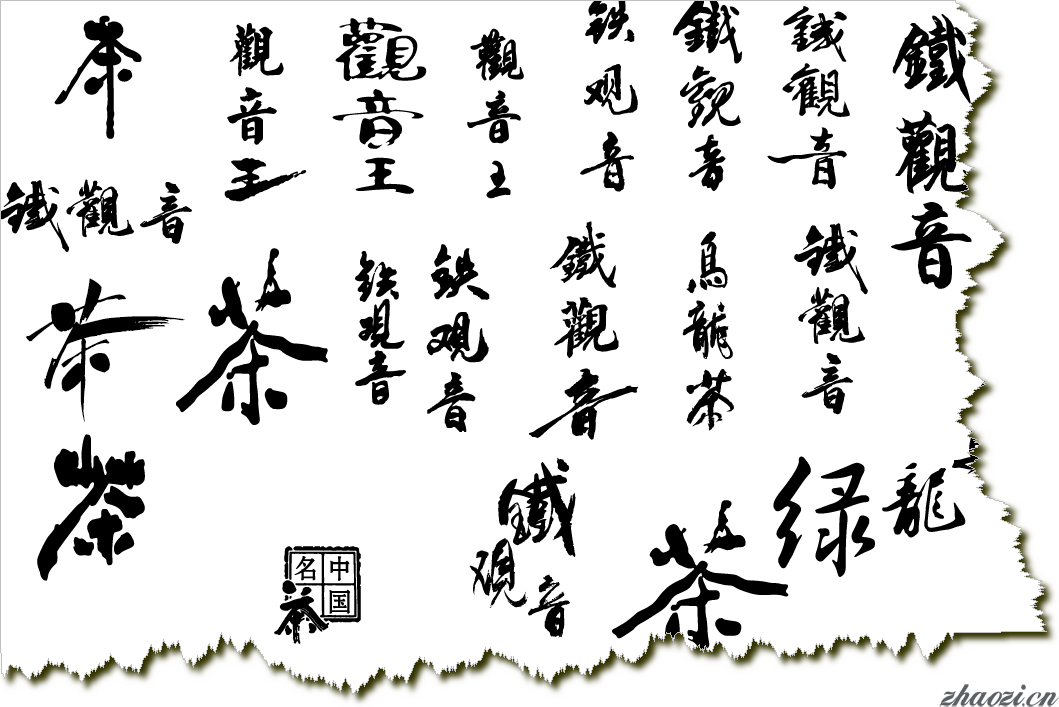 茶
觀音王
觀音王
觀音王
铁观音
鐵觀音
鐵觀音
鐵觀音
鐵觀音
茶
茶
铁观音
铁观音
鐵觀音
烏龍茶
鐵觀音
茶
中国名茶
鐵观音
茶
绿
龍
zhaozi.cn